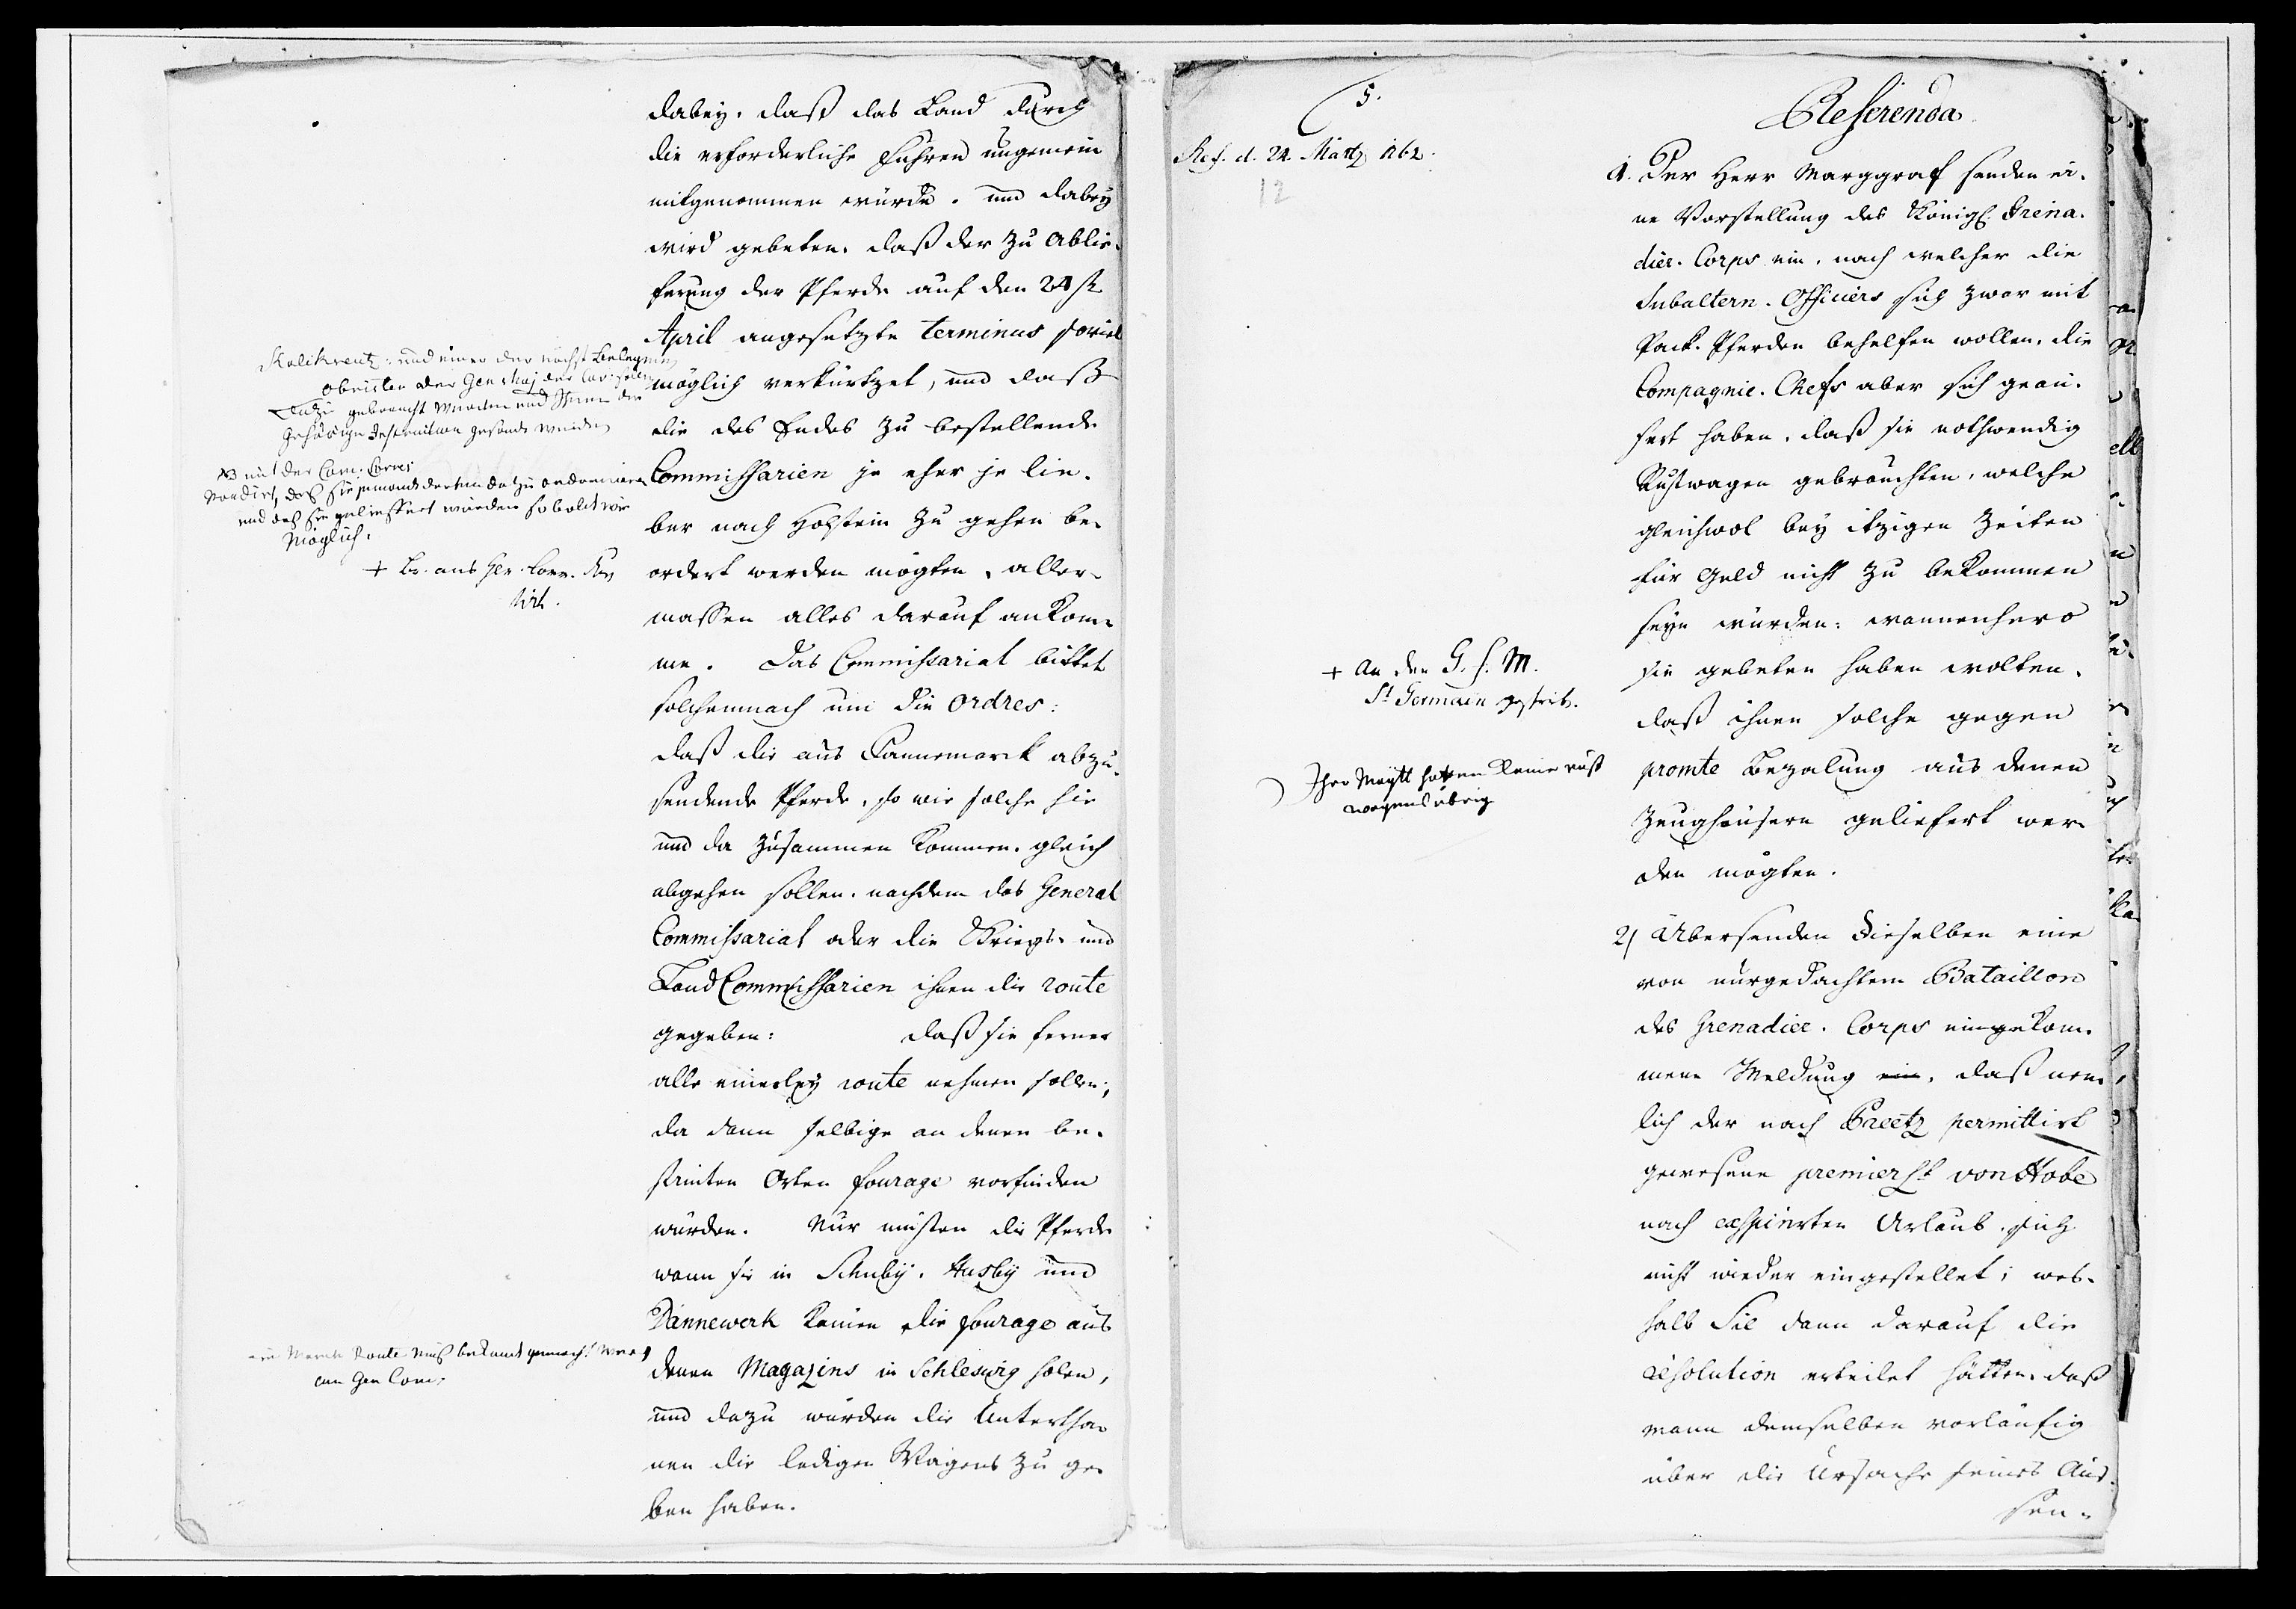 dabey, daß das Land durch
die erforderliche Fuhren ungemein
mitgenommen würde. und dabey
wird gebeten, daß der zu Ablie-
ferung der Pferde auf den 24st
April angesetzte terminus soviel
möglich verkürtzet, und daß
die des Endes zu bestellende
Commissarien je eher je lie-
ber nach Holstein zu gehen be-
ordert werden mögten, aller-
massen alles darauf ankom-
me. Das Commissariat bittet
solchemnach um die ordres:
daß die aus Dannemarck abzu-
sendende Pferde, so wie solche hie
und da zusammen kommen, gleich
abgehen sollen, nachdem das General
Commissariat oder die Kriegs- und
Land Commissarien ihnen die route
gegeben: daß sie ferner
alle einerley route nehmen sollen;
da dann selbige an denen be-
stimten Orten fourage vorfinden
würden. Nur müsten die Pferde
wann sie in Schuby, Husby und
Dannewerk kämen die fourage aus
denen Magazins in Schleswig holen,
und dazu würden die Untertha-
nen die ledigen Wagens zu ge-
ben haben.
und einer der nächst Belegenen
Obristen oder Gen Maj der Cav: sollen
dazu gebraucht werden und Ihnen die
gehörige Instruction gesandt werden
NB mit der
daß sie jemand darhin dazu ordonniren
und daß sie geliefert würden so bald wie
möglich.
+
Route muß bekandt gemacht
am Gen Com:
5.
Ref. d. 24. Märtz 1762.
12
+ An den G. F. M.
St Germain
Ihro Maytt haben keine rüst
wagens übrig
Referenda
1. Der Herr Marggraf senden ei-
ne Vorstellung des Königl. Grena-
dier-Corps ein, nach welcher die
Subaltern-Officiers sich zwar mit
Pack-Pferden behelfen wollen, die
Compagnie-Chefs aber sich geäu-
sert haben, daß sie nothwendig
Rustwagen gebrauchten, welche
gleichwol bey itzigen Zeiten
für Geld nicht zu bekommen
seyn würden: wannenhero
sie gebeten haben wolten,
daß ihnen solche gegen
promte Bezalung aus denen
Zeughäusern geliefert wer-
den mögten.
2) Übersenden Dieselben eine
von nurgedachtem Bataillon
des Grenadier-Corps eingekom-
mene Meldung ein, daß nem-
lich der nach Preetz permittirt
gewesene premier Lt von Hobe
nach expirirten Urlaub sich
nicht wieder eingestellet; wes-
halb Sie dann darauf die
resolution erteilet hätten, daß
mann demselben vorläufig
über die Ursache seines Aus-
sen-